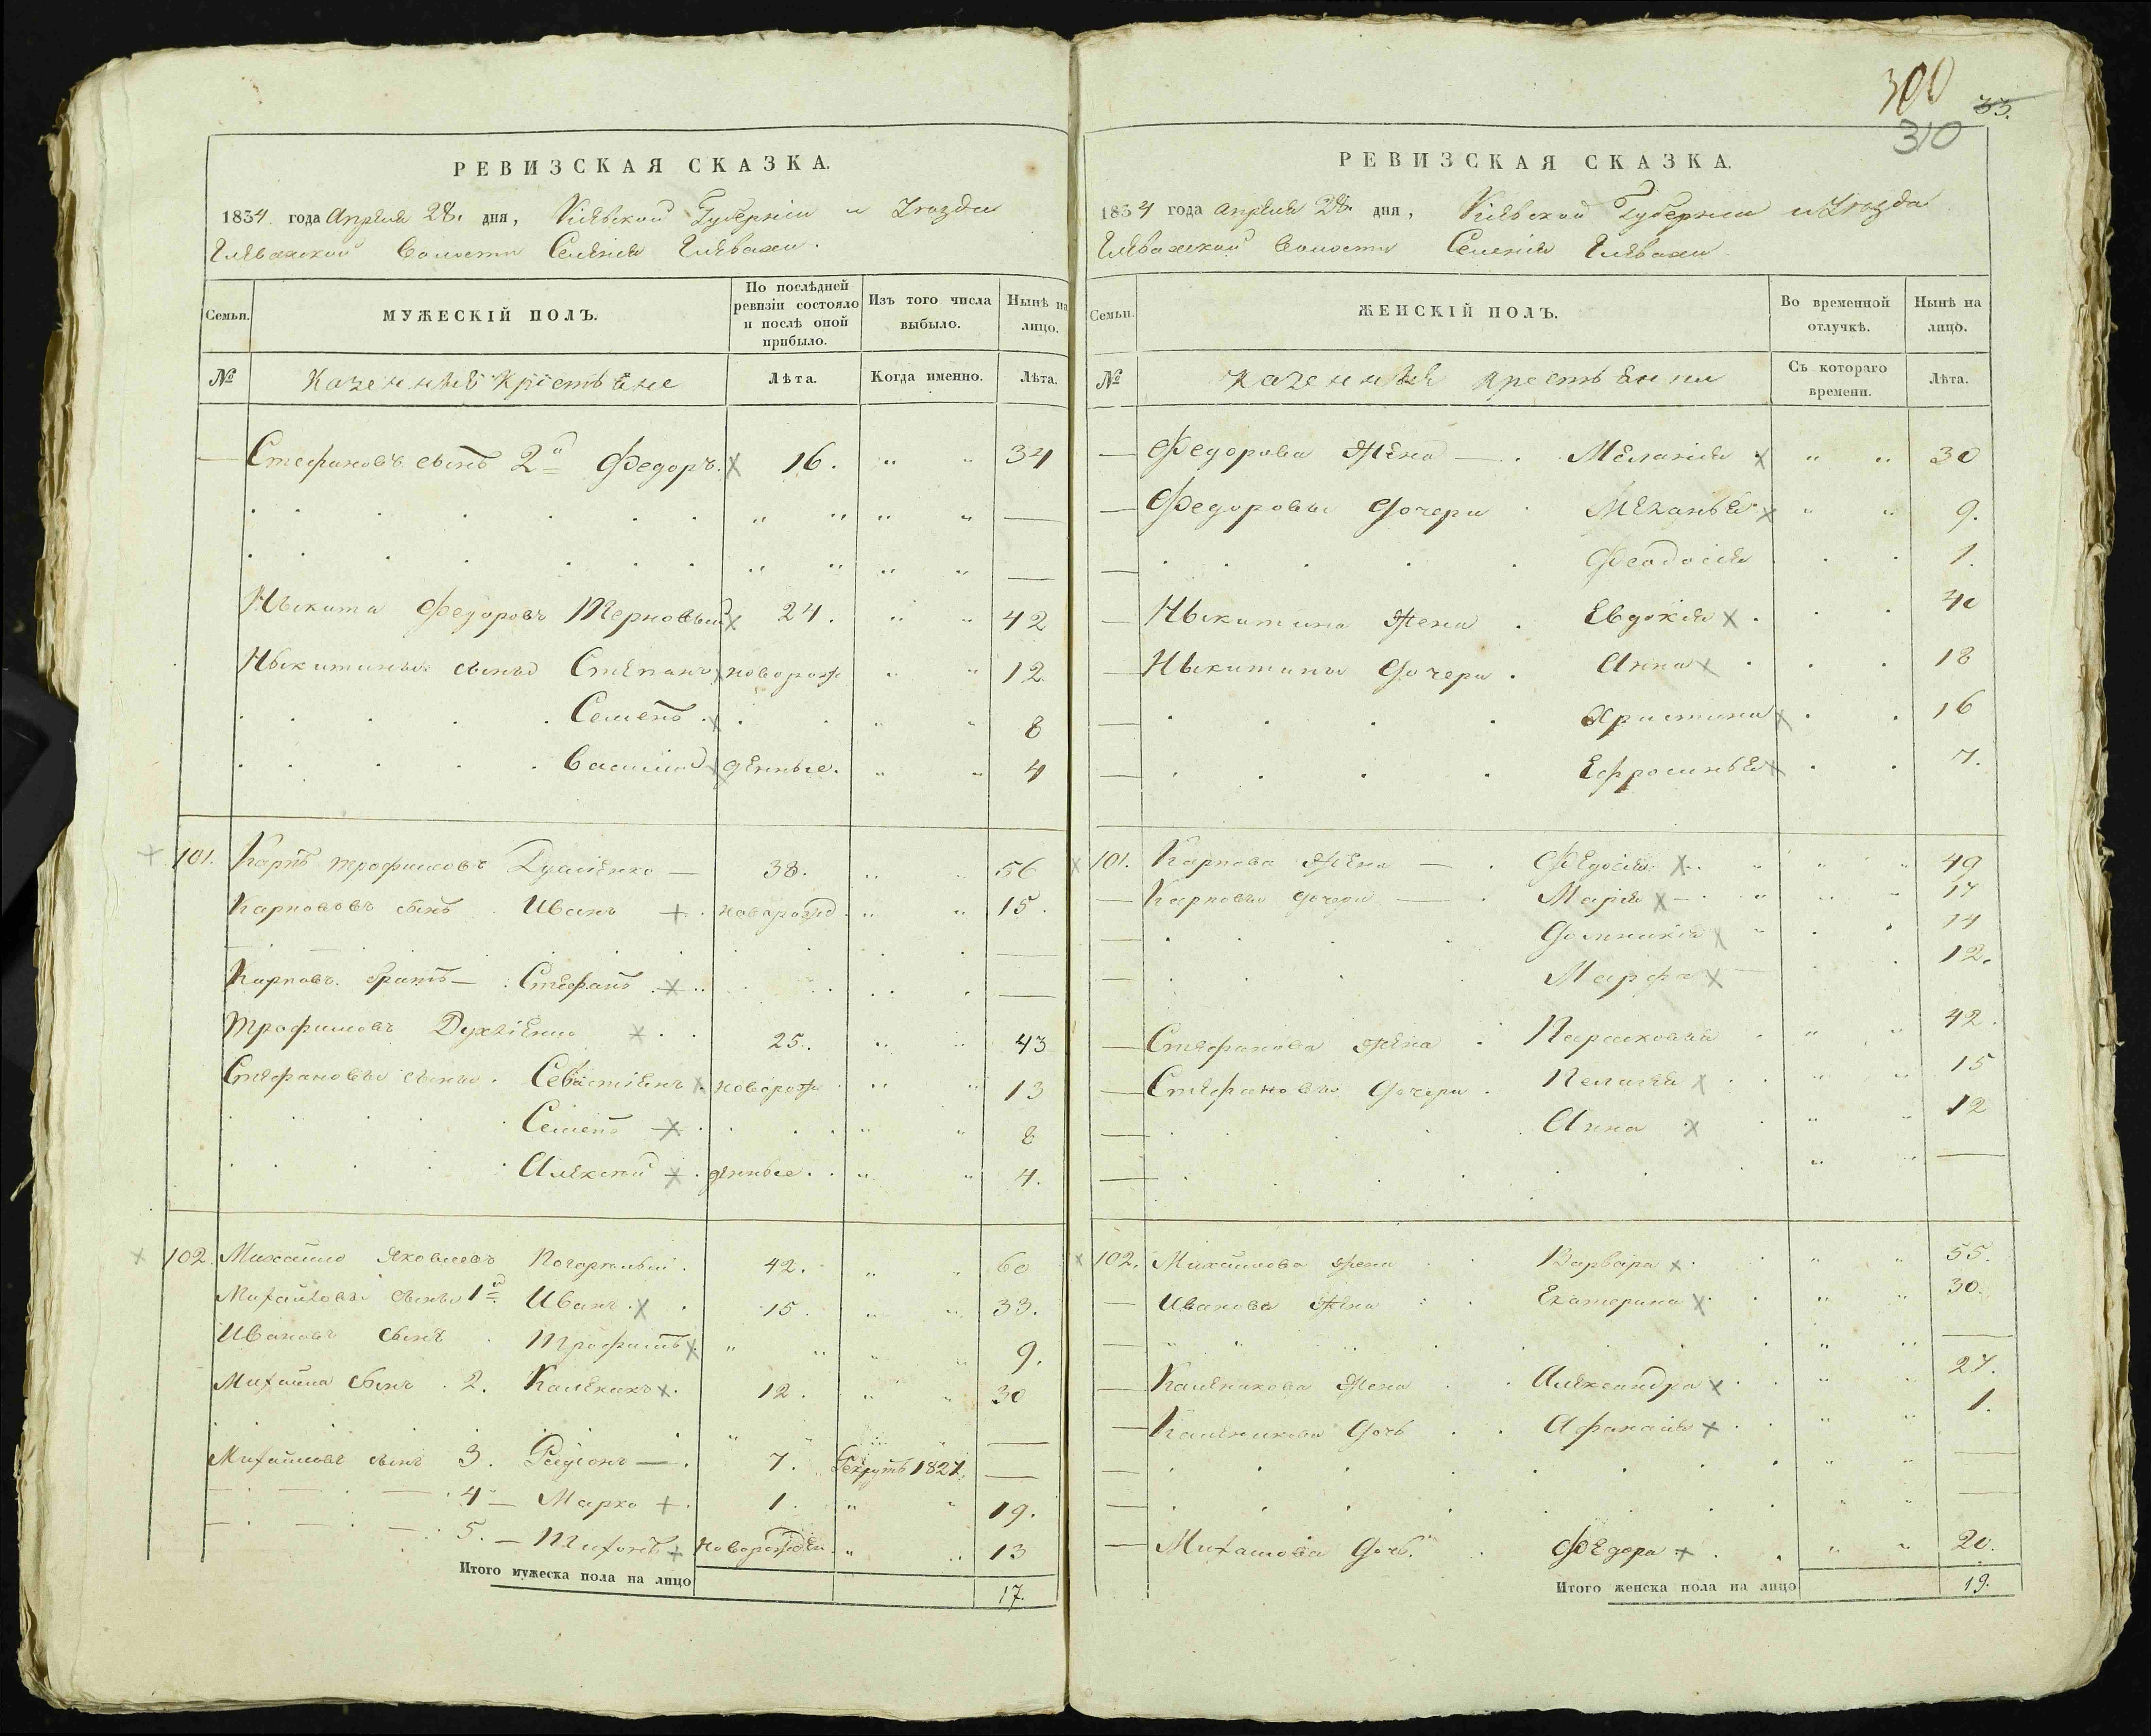 РЕВИЗСКАЯ СКАЗКА.
1834. года Апреля 28. дня, Кіевской Губерніи и Уезда
Глевахской Волости Селенія Глевахи.
Семьи. МУЖЕСКІЙ ПОЛЪ. По послѣдней ревизіи состояло и послѣ оной прибыло. Изъ того числа выбыло. Нынѣ на лицо.
№ Казенные Крiестьяне Лѣта. Когда именно. Лѣта.
Стефановъ сынъ 2й Федоръ. 16. 34
Ныкита Федоровъ Терновый 24. 42
Ныкитины сыны Степанъ новорож 12.
Семенъ 8
Василий денные. 4
101. Карпъ Трофимовъ 38. 56
Карпововъ сынъ Иванъ новорожд 15.
Карповъ братъ Стефанъ
Трофимовъ 25. 43
Стефановы сыны Севастіянъ новорож 13
Семенъ 8
Алексей денные. 4.
102. Михайло Яковлевъ Погорилый. 42. 60
Михайловы сыны 1й Иванъ. 15. 33.
Ивановъ сынъ Трофимъ 9.
Михайла сынъ 2. Каленикъ 12. 30
Михайловъ сынъ 3. Родіонъ 7. Рекрутъ 1827.
4 Марко 1. 19.
5. Тихонъ Новорожден. 13
Итого мужеска пола на лицо 17.
300
33.
310
РЕВИЗСКАЯ СКАЗКА.
1834 года Апреля 28. дня, Кіевской Губернии и Уезда
Глевахской Волости Селенія Глевахи.
Семьи. ЖЕНСКІЙ ПОЛЪ. Во временной отлучкѣ. Нынѣ на лицо.
№ Казенные Крестьянки Съ котораго времени. Лѣта.
Федорова Жена Меланія 30
Федоровы Дочери 9.
Феодосія 1.
Ныкитина Жена Евдокія 40
Ныкитины Дочери Анна 18
Христина 16
Ефросинья 7.
101. Карпова Жена Федосія 49
Карповы Дочери Марія 17
Домникія 14
Марфа 12.
Стефанова Жена Парасковія 42.
Стефановы Дочери Пелагея 15
Анна 12
102. Михайлова Жена Варвара 55.
Иванова Жена Екатерина 30.
Каленикова Жена Александра 27.
Каленикова Дочь Афанасія 1.
Михайлова Дочь. Федора 20.
Итого женска пола на лицо 19.